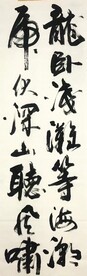 龍臥淺灘等海潮
虎伏深山聽風嘯